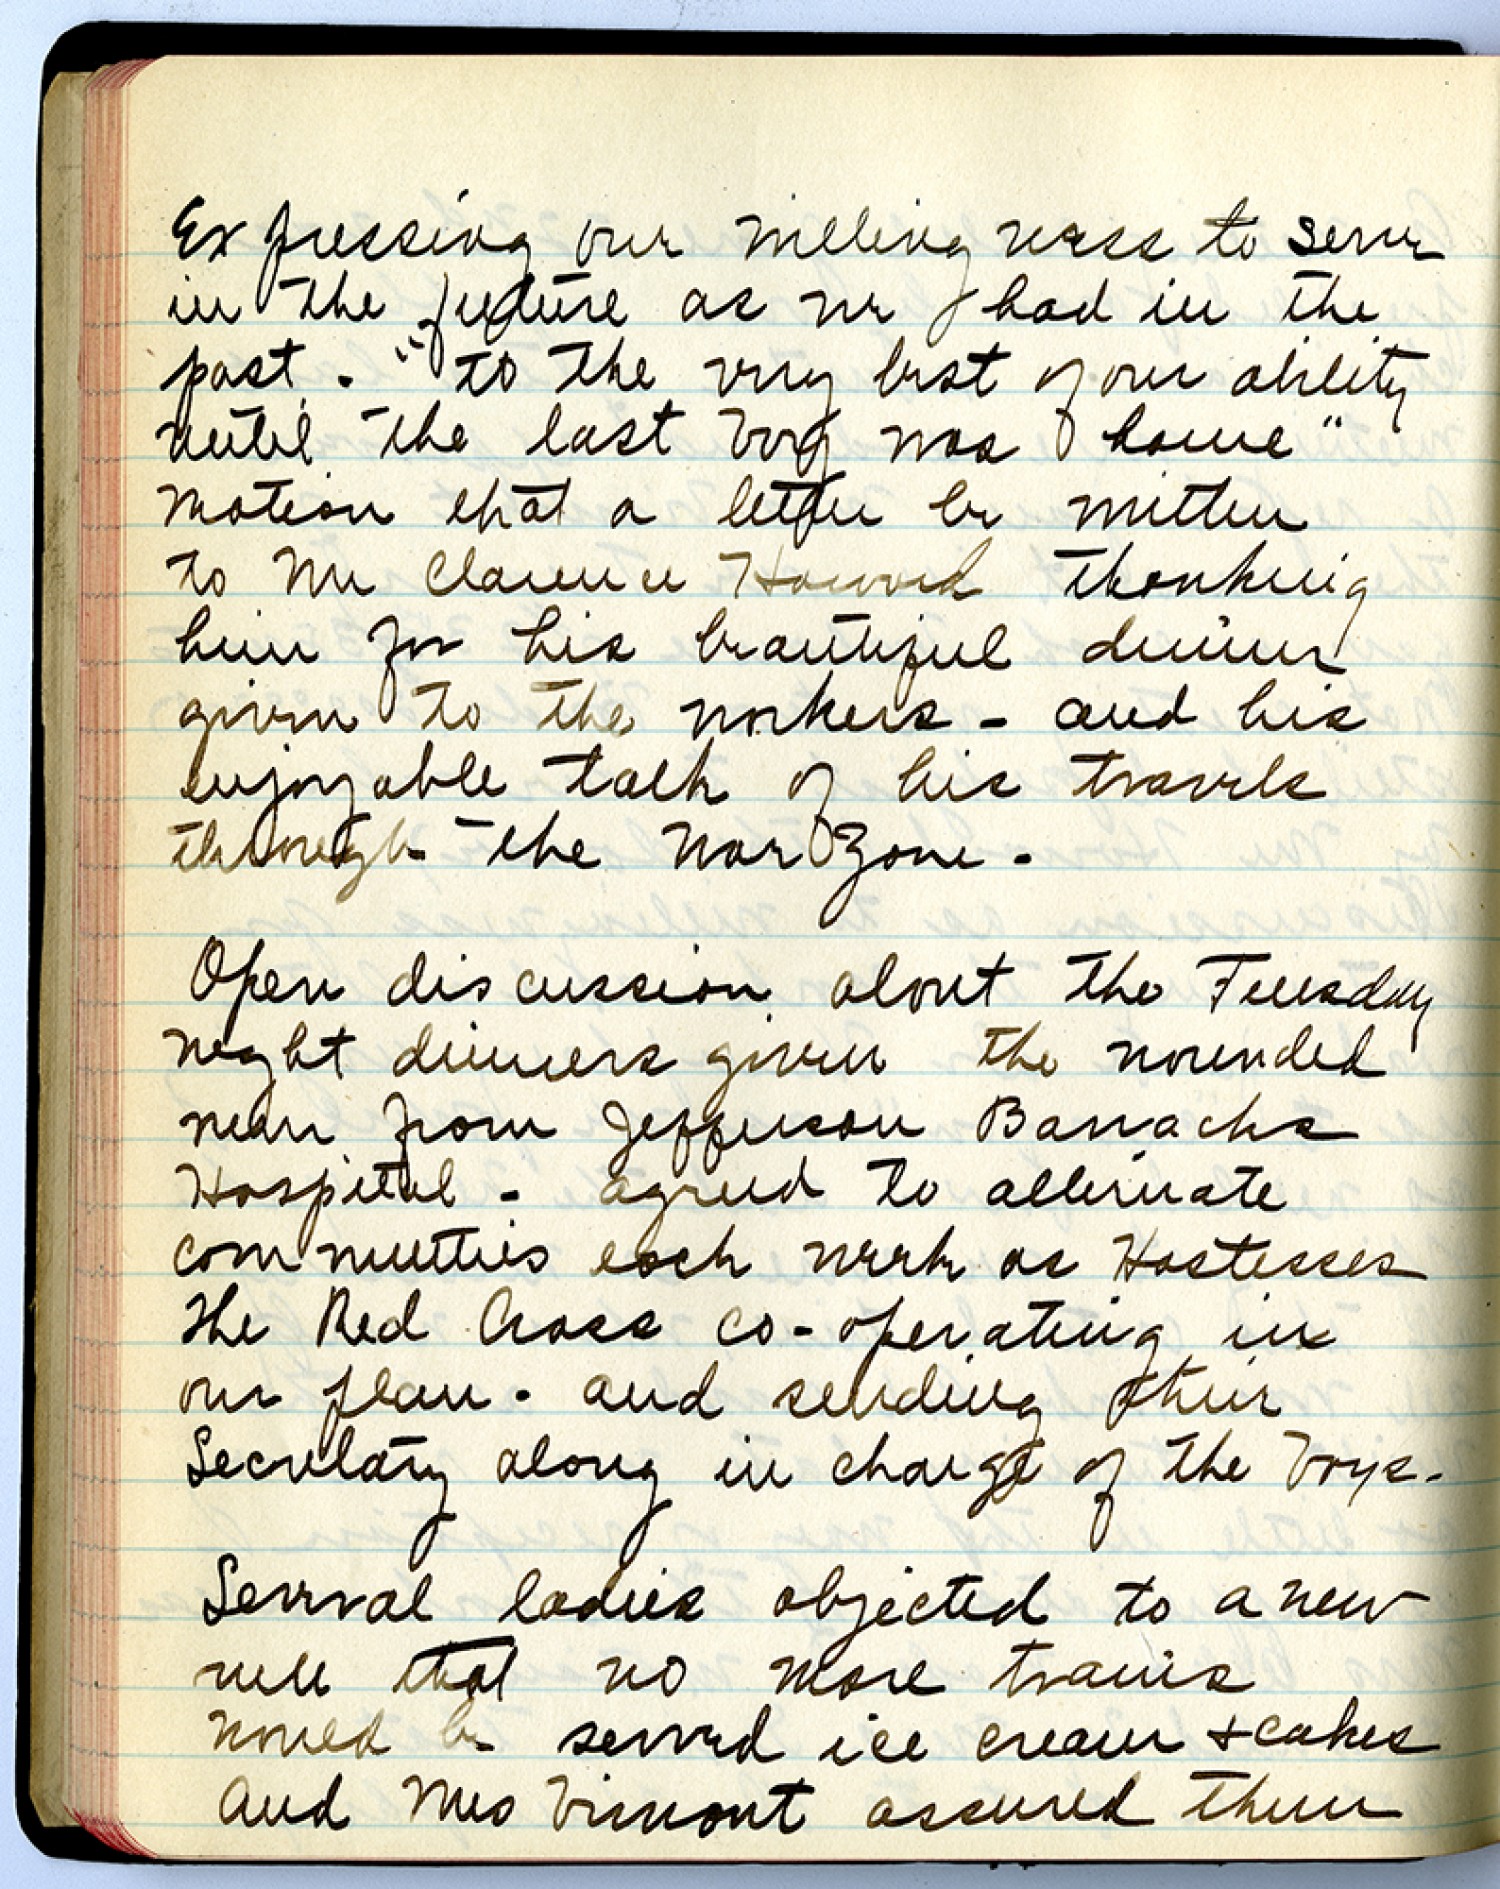 Expressing our willingness to serve
in the future as we had in the
past. "to the very best of our ability
until the last boy was home"
Motion that a letter be written
to Mr Clarence Howard thanking
him for his beautiful dinner
given to the workers - and his
enjoyable talk of his travels
through the War Zone -
Open discussion about the Tuesday
night dinners given the wounded
men from Jefferson Barracks
Hospital - agreed to alternate
committies each week as Hostesses
the Red Cross co-operating in
our plan - and sending their
Secretary along in charge of the boys -
Several ladies objected to a new
rule that no more trains
would be served ice cream + cakes
and Mrs Vimont assured them